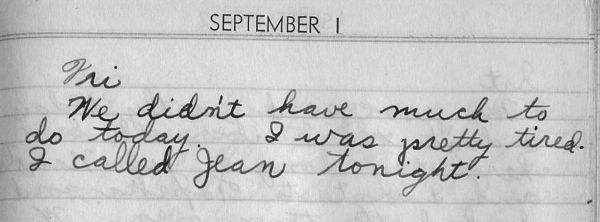 SEPTEMBER 1
Fri
We didn't have much to
do today. I was pretty tired.
I called Jean tonight.